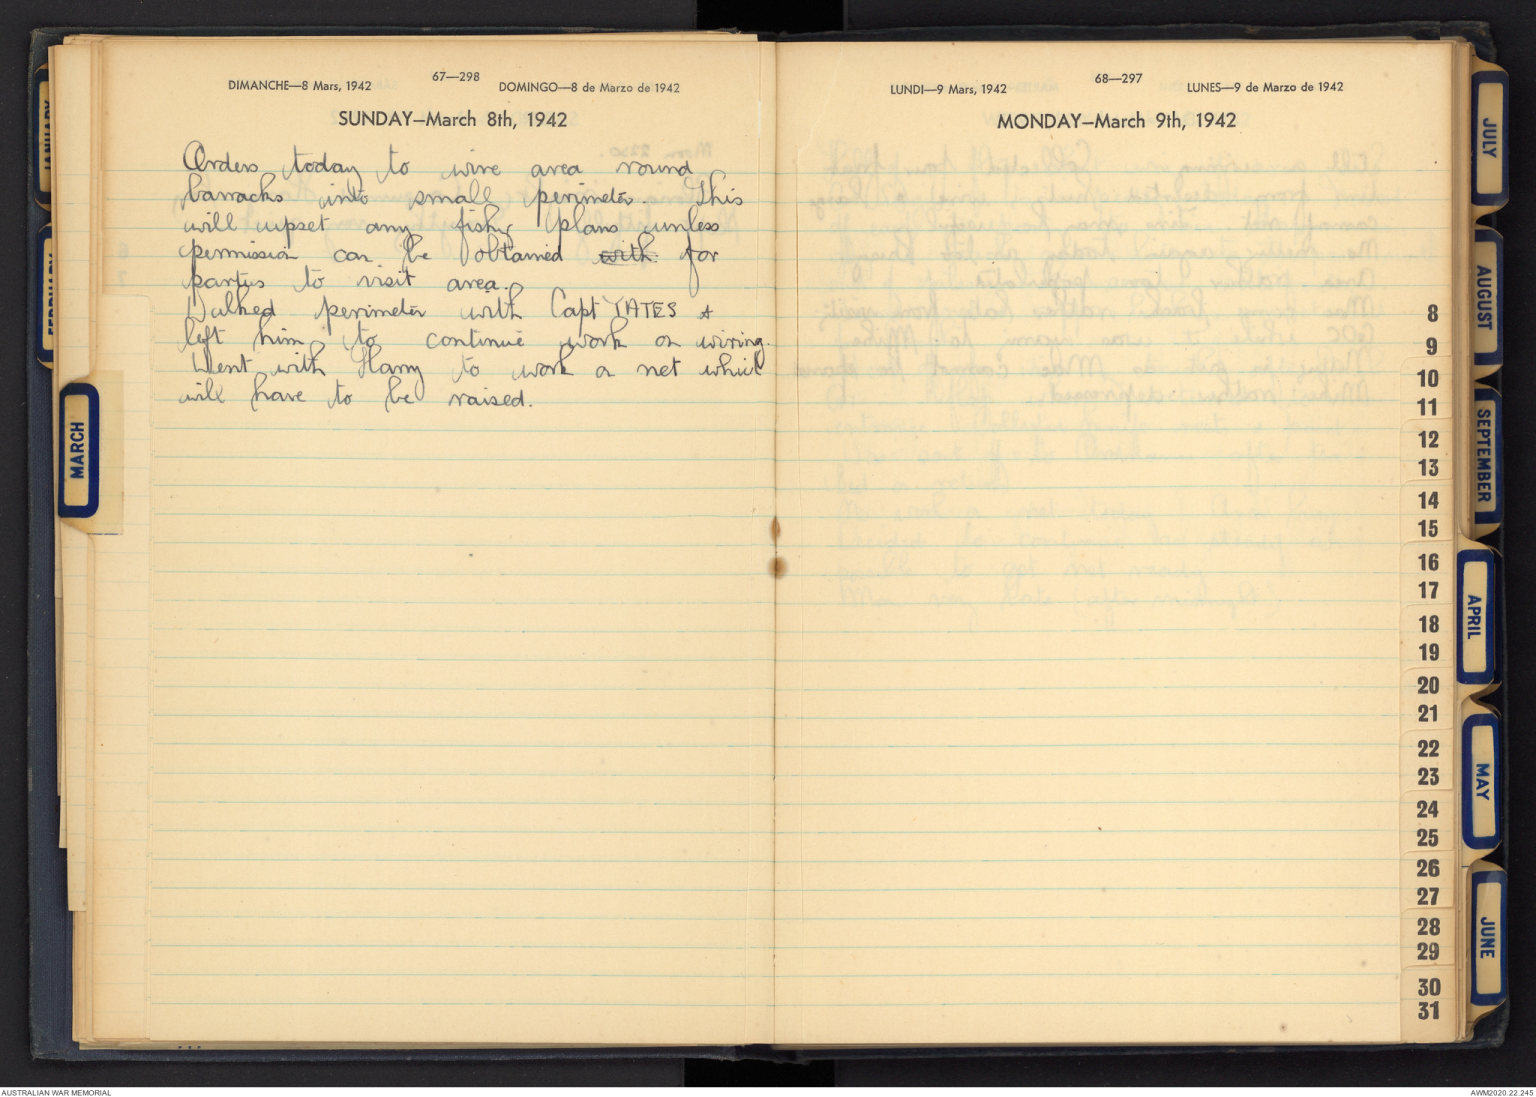 DIMANCHE—8 Mars, 1942
67—298
DOMINGO—8 de Marzo de 1942
SUNDAY—March 8th, 1942
Orders today to wire area round
barracks into small perimeter. This
will upset any fishing plans unless
permission can be obtained with for
parties to visit area.
Walked perimeter with Capt YATES &
left him to continue work on wiring.
Went with Harry to work on net which
will have to be raised.
LUNDI—9 Mars, 1942
68—297
LUNES—9 de Marzo de 1942
MONDAY—March 9th, 1942
JANUARY
FEBRUARY
MARCH
8
9
10
11
12
13
14
15
16
17
18
19
20
21
22
23
24
25
26
27
28
29
30
31
JULY
AUGUST
SEPTEMBER
APRIL
MAY
JUNE
AUSTRALIAN WAR MEMORIAL
AWM2020.22.245